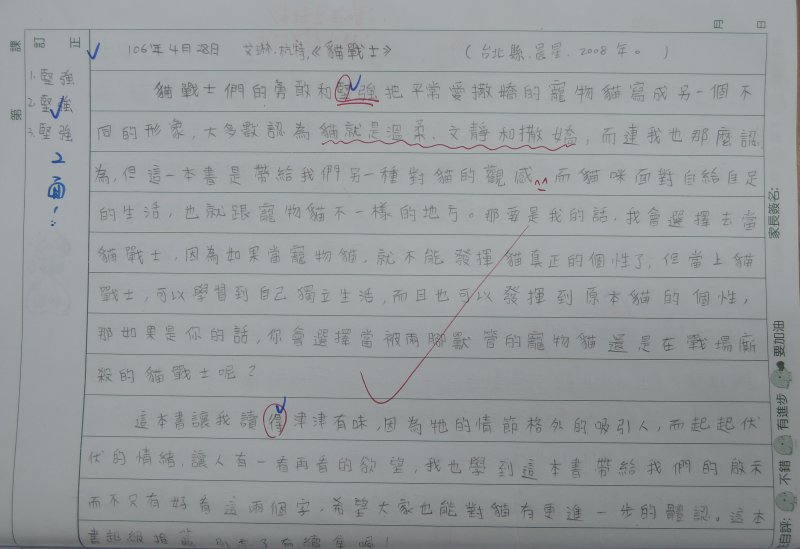 月 日
訂正
課
第
1.堅強
2.堅強
3.堅強
106年4月28日 艾琳.杭特,《貓戰士》 (台北縣.晨星.2008年。)
貓戰士們的勇敢和堅強把平常愛撒嬌的寵物貓寫成另一個不
同的形象,大多數認為貓就是溫柔、文靜和撒嬌,而連我也那麼認
為,但這一本書是帶給我們另一種對貓的觀感,而貓咪面對自給自足
的生活,也就跟寵物貓不一樣的地方。那要是我的話,我會選擇去當
貓戰士,因為如果當寵物貓,就不能發揮貓真正的個性了,但當上貓
戰士,可以學習到自己獨立生活,而且也可以發揮到原本貓的個性,
那如果是你的話,你會選擇當被兩腳獸管的寵物貓還是在戰場廝
殺的貓戰士呢?
這本書讓我讀得津津有味,因為牠的情節格外的吸引人,而起起伏
伏的情緒,讓人有一看再看的欲望,我也學到這本書帶給我們的啟示
而不只有好看這兩個字,希望大家也能對貓有更進一步的體認。這本
書超級推薦
家長簽名:
自評: 不錯 有進步 要加油